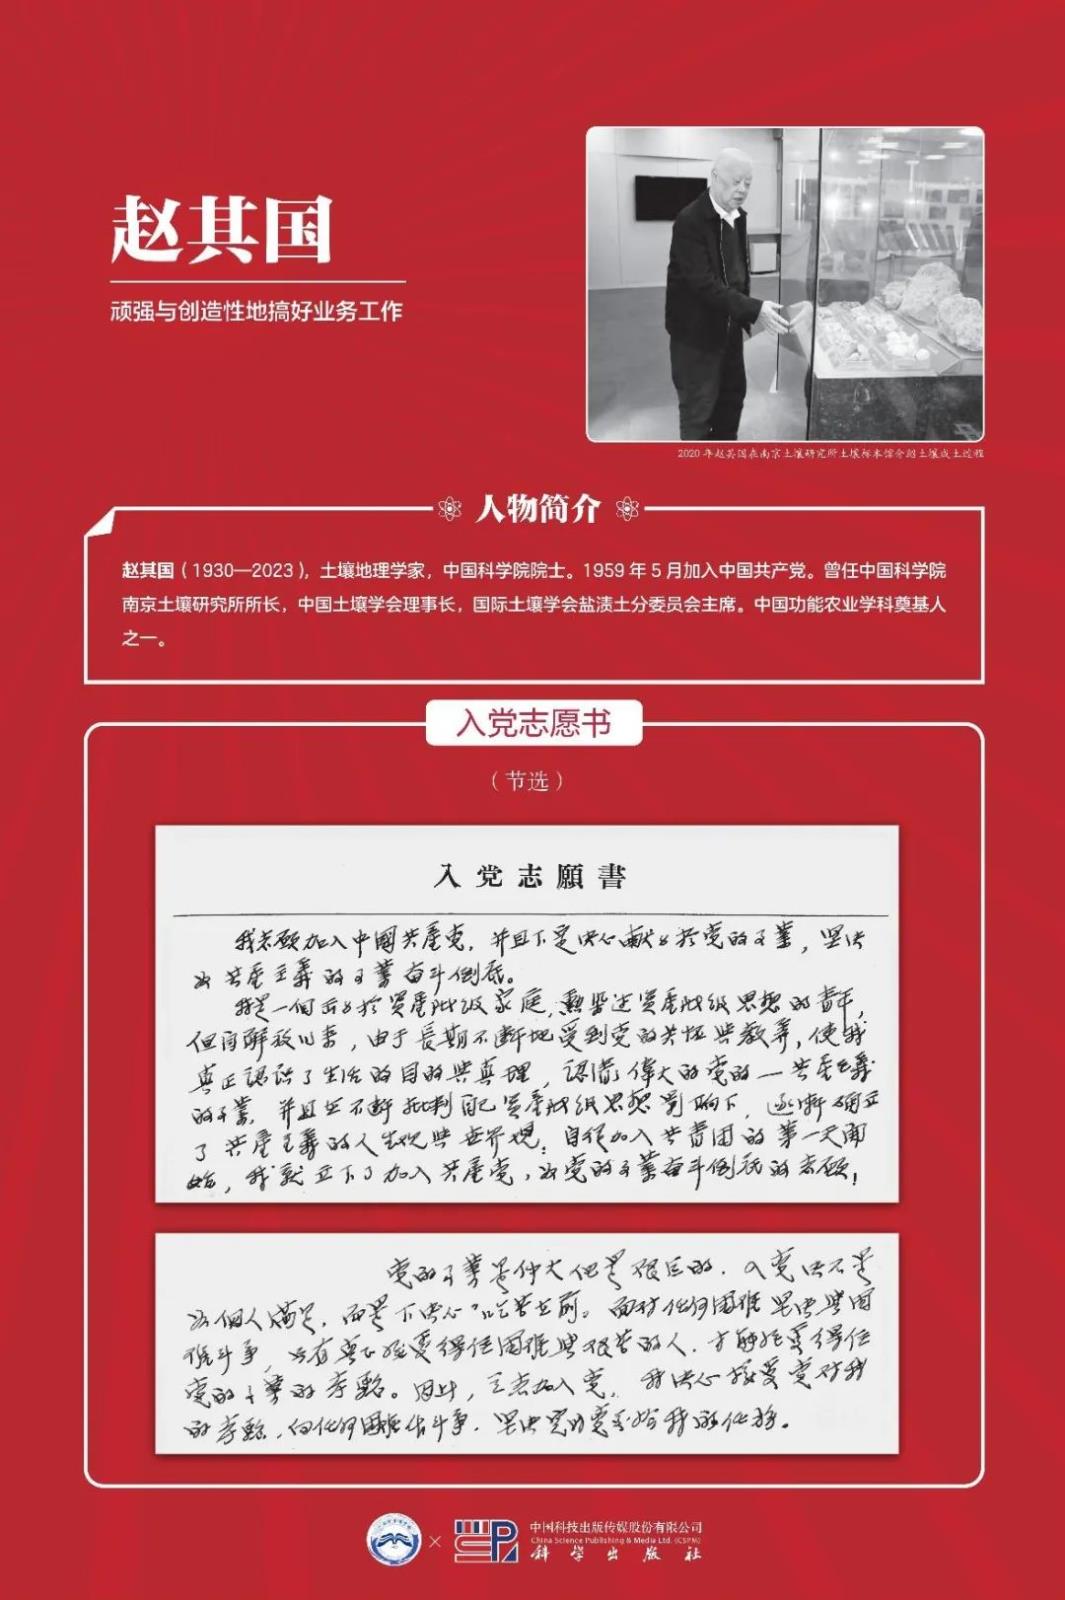 赵其国
顽强与创造性地搞好业务工作
2020年赵其国在南京土壤研究所土壤标本馆介绍土壤成土过程
人物简介
赵其国（1930—2023），土壤地理学家，中国科学院院士。1959年5月加入中国共产党。曾任中国科学院
南京土壤研究所所长，中国土壤学会理事长，国际土壤学会盐渍土分委员会主席。中国功能农业学科奠基人
之一。
入党志愿书
（节选）
入党志願書
我志愿加入中國共產党，并且下定决心献身於党的事業，坚决
为共產主義的事業奋斗到底。
我是一個出身於資產阶级家庭，熏染过資產阶级思想的青年，
但自解放以来，由于長期不断地受到党的
教养，使我
真正認识了生活的目的與真理，認清了偉大的党的一共產主義
的事業，并且在不断批判自己資產阶级思想影响下，逐渐确立
了共產主義的人生观與世界观；自從加入共青团的第一天開
始，我就立下了加入共產党，为党的事業奋斗到底的志愿！
党的事業是伟大但是艰巨的，入党决不是
为個人满足，而是下决心“吃苦在前”。面对任何困难坚决與困
难斗争，只有真正经受得住困难與艰苦的人，才能经受得住
党的事業的考驗。因此，
加入党，我决心接受党对我
的考驗，向任何困难作斗争，坚决完成党交给我的任務。
中国科技出版传媒股份有限公司
China Science Publishing & Media Ltd. (CSPM)
科学出版社